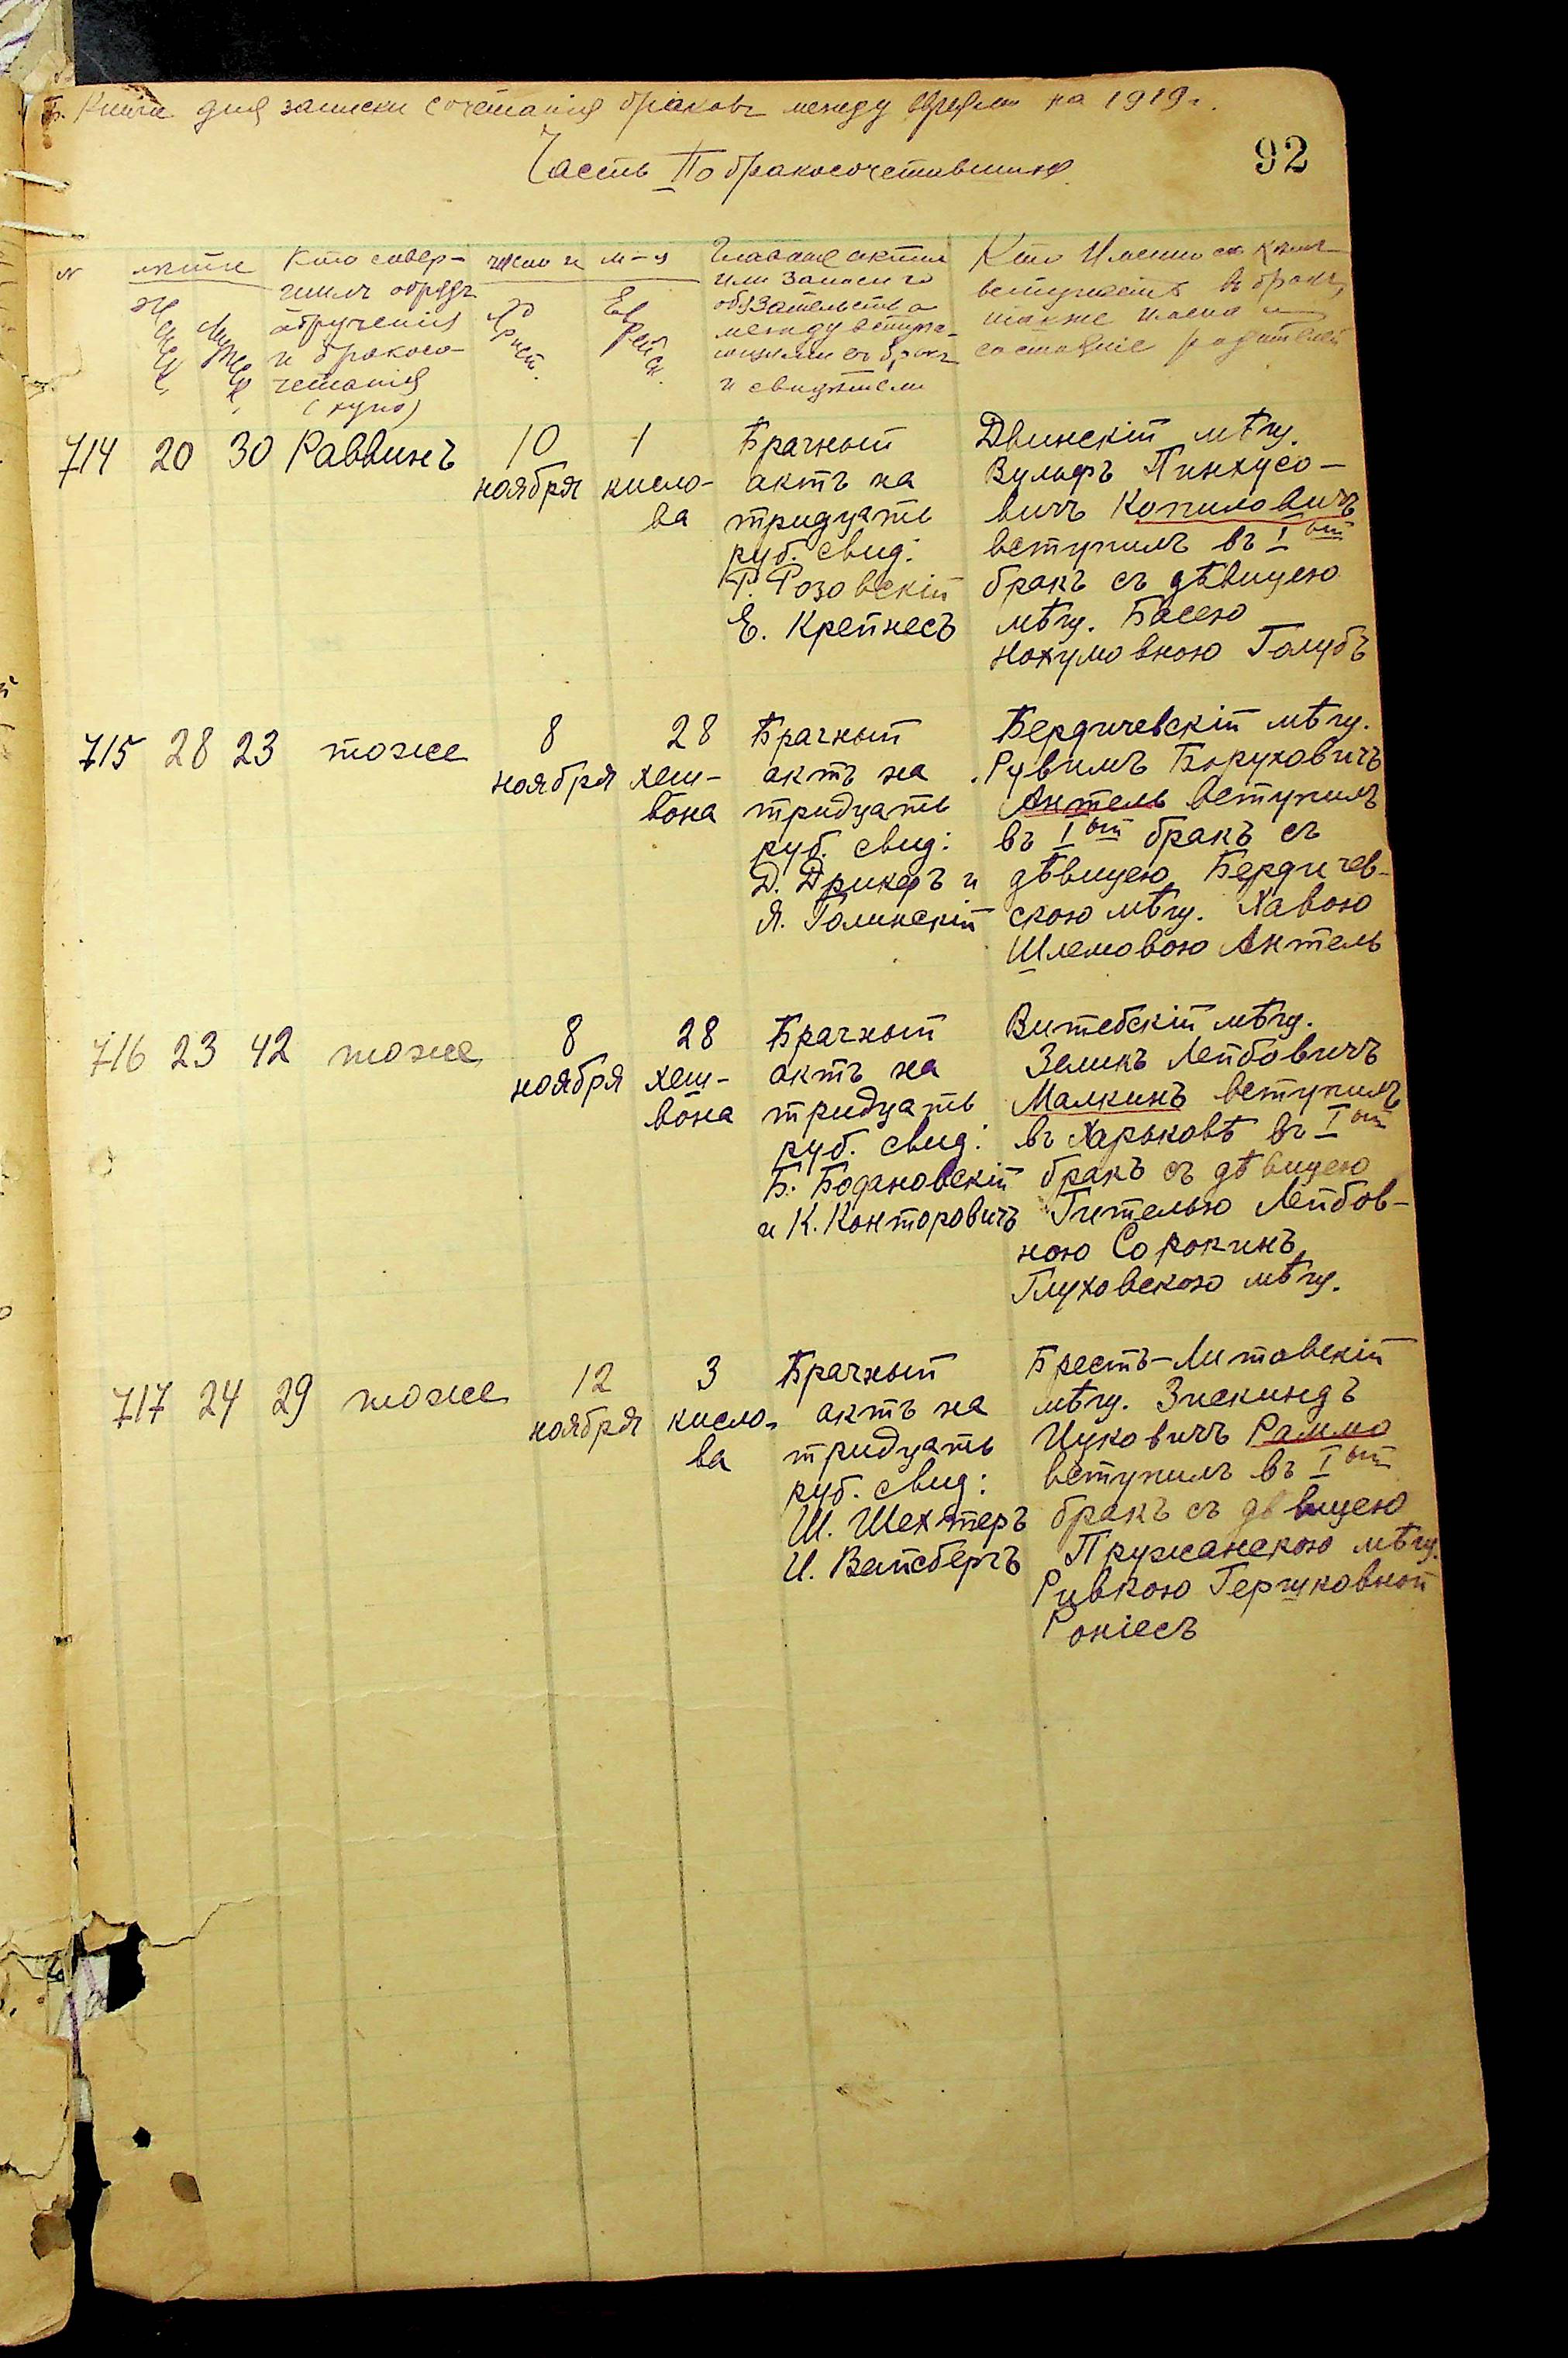 Книга для записки сочетанія браковъ между евреями на 1919 г.
Часть II о бракосочетавшихся
92
№ лѣта Кто совер- число и м-ц Главные акты Кто именно съ кѣмъ
шилъ обрядъ или записи и вступаетъ въ бракъ,
Женск. Мужск. обрученія Христ. Еврейск. обязательства также имена и
и бракосо- между вступа- состояніе родителей
четанія ющими въ бракъ
(хупо) и свидѣтели
714 20 30 Раввинъ 10 1 Брачный Двинскій мѣщ.
ноября кисло- актъ на Вульфъ Пинхусо-
ва тридцать вичъ Копиловичъ
руб. свид: вступилъ въ I ый
Г. Розовскій бракъ съ дѣвицею
Е. Крейнесъ мѣщ. Басею
Нохумовною Голубъ
715 28 23 тоже 8 28 Брачный Бердичевскій мѣщ.
ноября хеш- актъ на Рувимъ Боруховичъ
вона тридцать Антель вступилъ
руб. свид: въ I ый бракъ съ
Д. Дрикеръ и дѣвицею Бердичев-
Я. Голинскій скою мѣщ. Хавою
Шлемовою Антель
716 23 42 тоже 8 28 Брачный Витебскій мѣщ.
ноября хеш- актъ на Зеликъ Лейбовичъ
вона тридцать Малкинъ вступилъ
руб. свид: въ Харьковѣ въ I ый
Б. Богановскій бракъ съ дѣвицею
и К. Конторовичъ Гителью Лейбов-
ною Сорокинъ
Глуховскою мѣщ.
717 24 29 тоже 12 3 Брачный Брестъ-Литовскій
ноября кисло- актъ на мѣщ. Зискиндъ
ва тридцать Ицковичъ Рамма
руб. свид: вступилъ въ I ый
Ш. Шехтеръ бракъ съ дѣвицею
И. Вайсбергъ Пружанскою мѣщ.
Ривкою Герцковной
Роніесъ